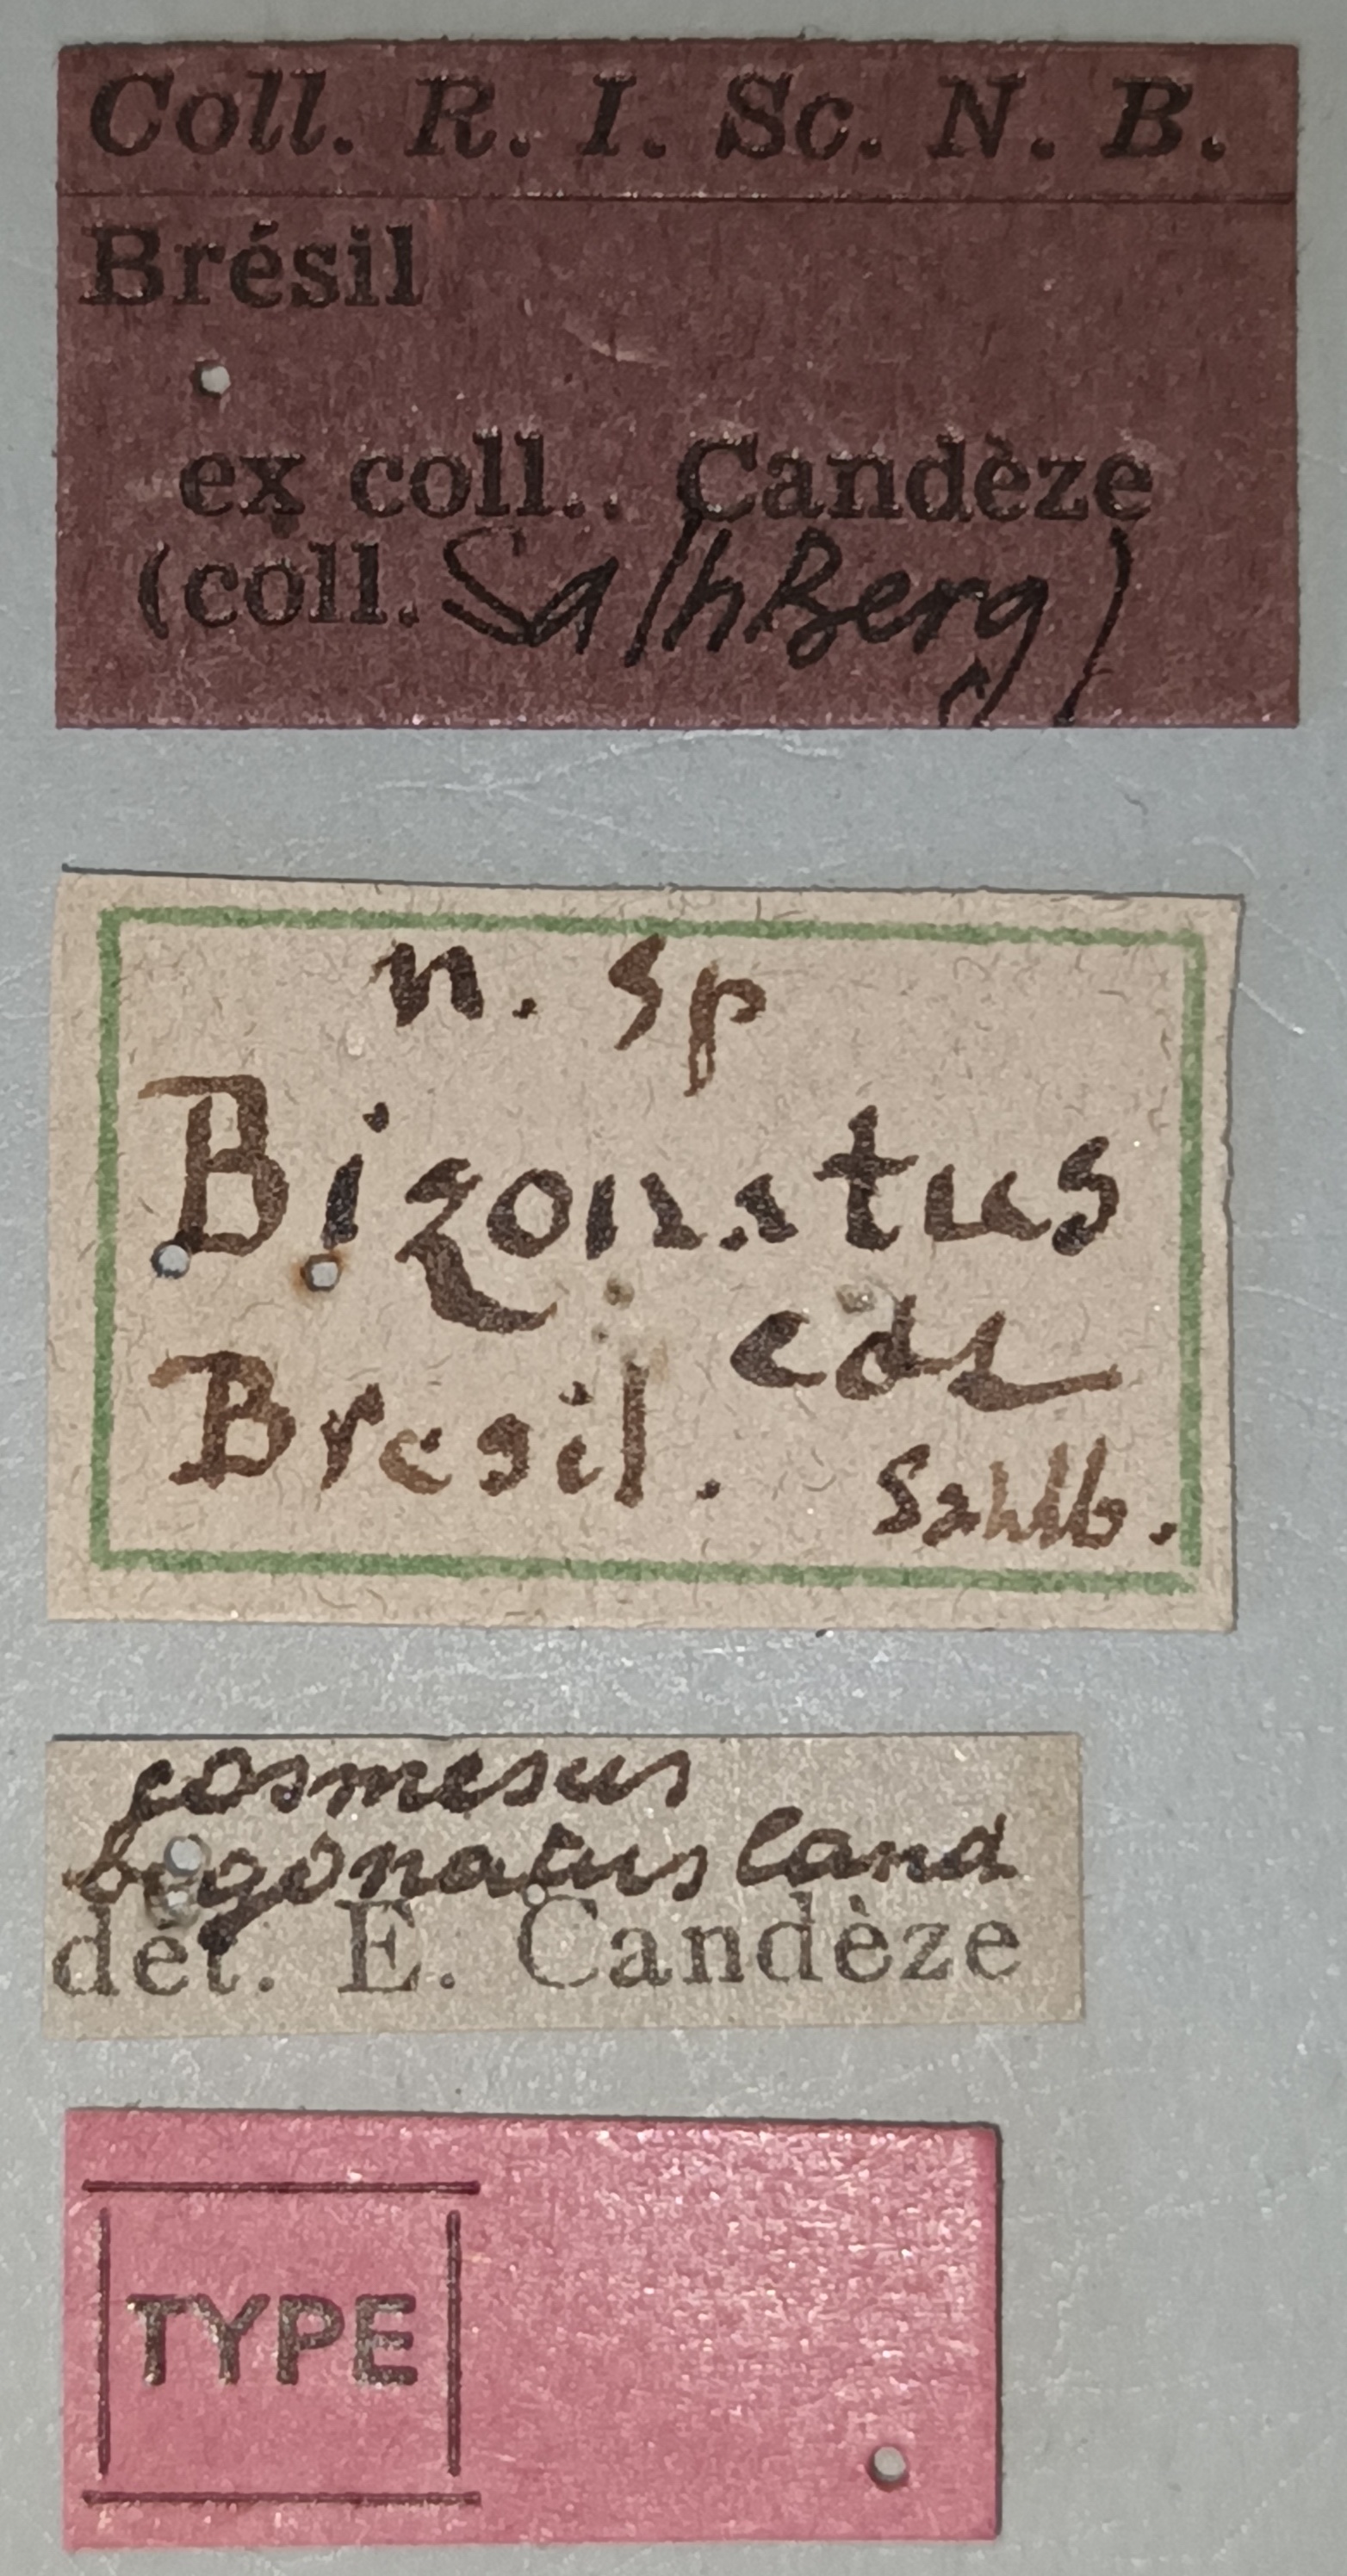 Coll. R. I. Sc. N. B.
Brésil
ex coll.. Candèze
(coll. SalhBerg)
n. sp
Bizonatus
cdz
Bresil.
Sahlb.
cosmesus
bizonatus Cand
det. E. Candèze
TYPE